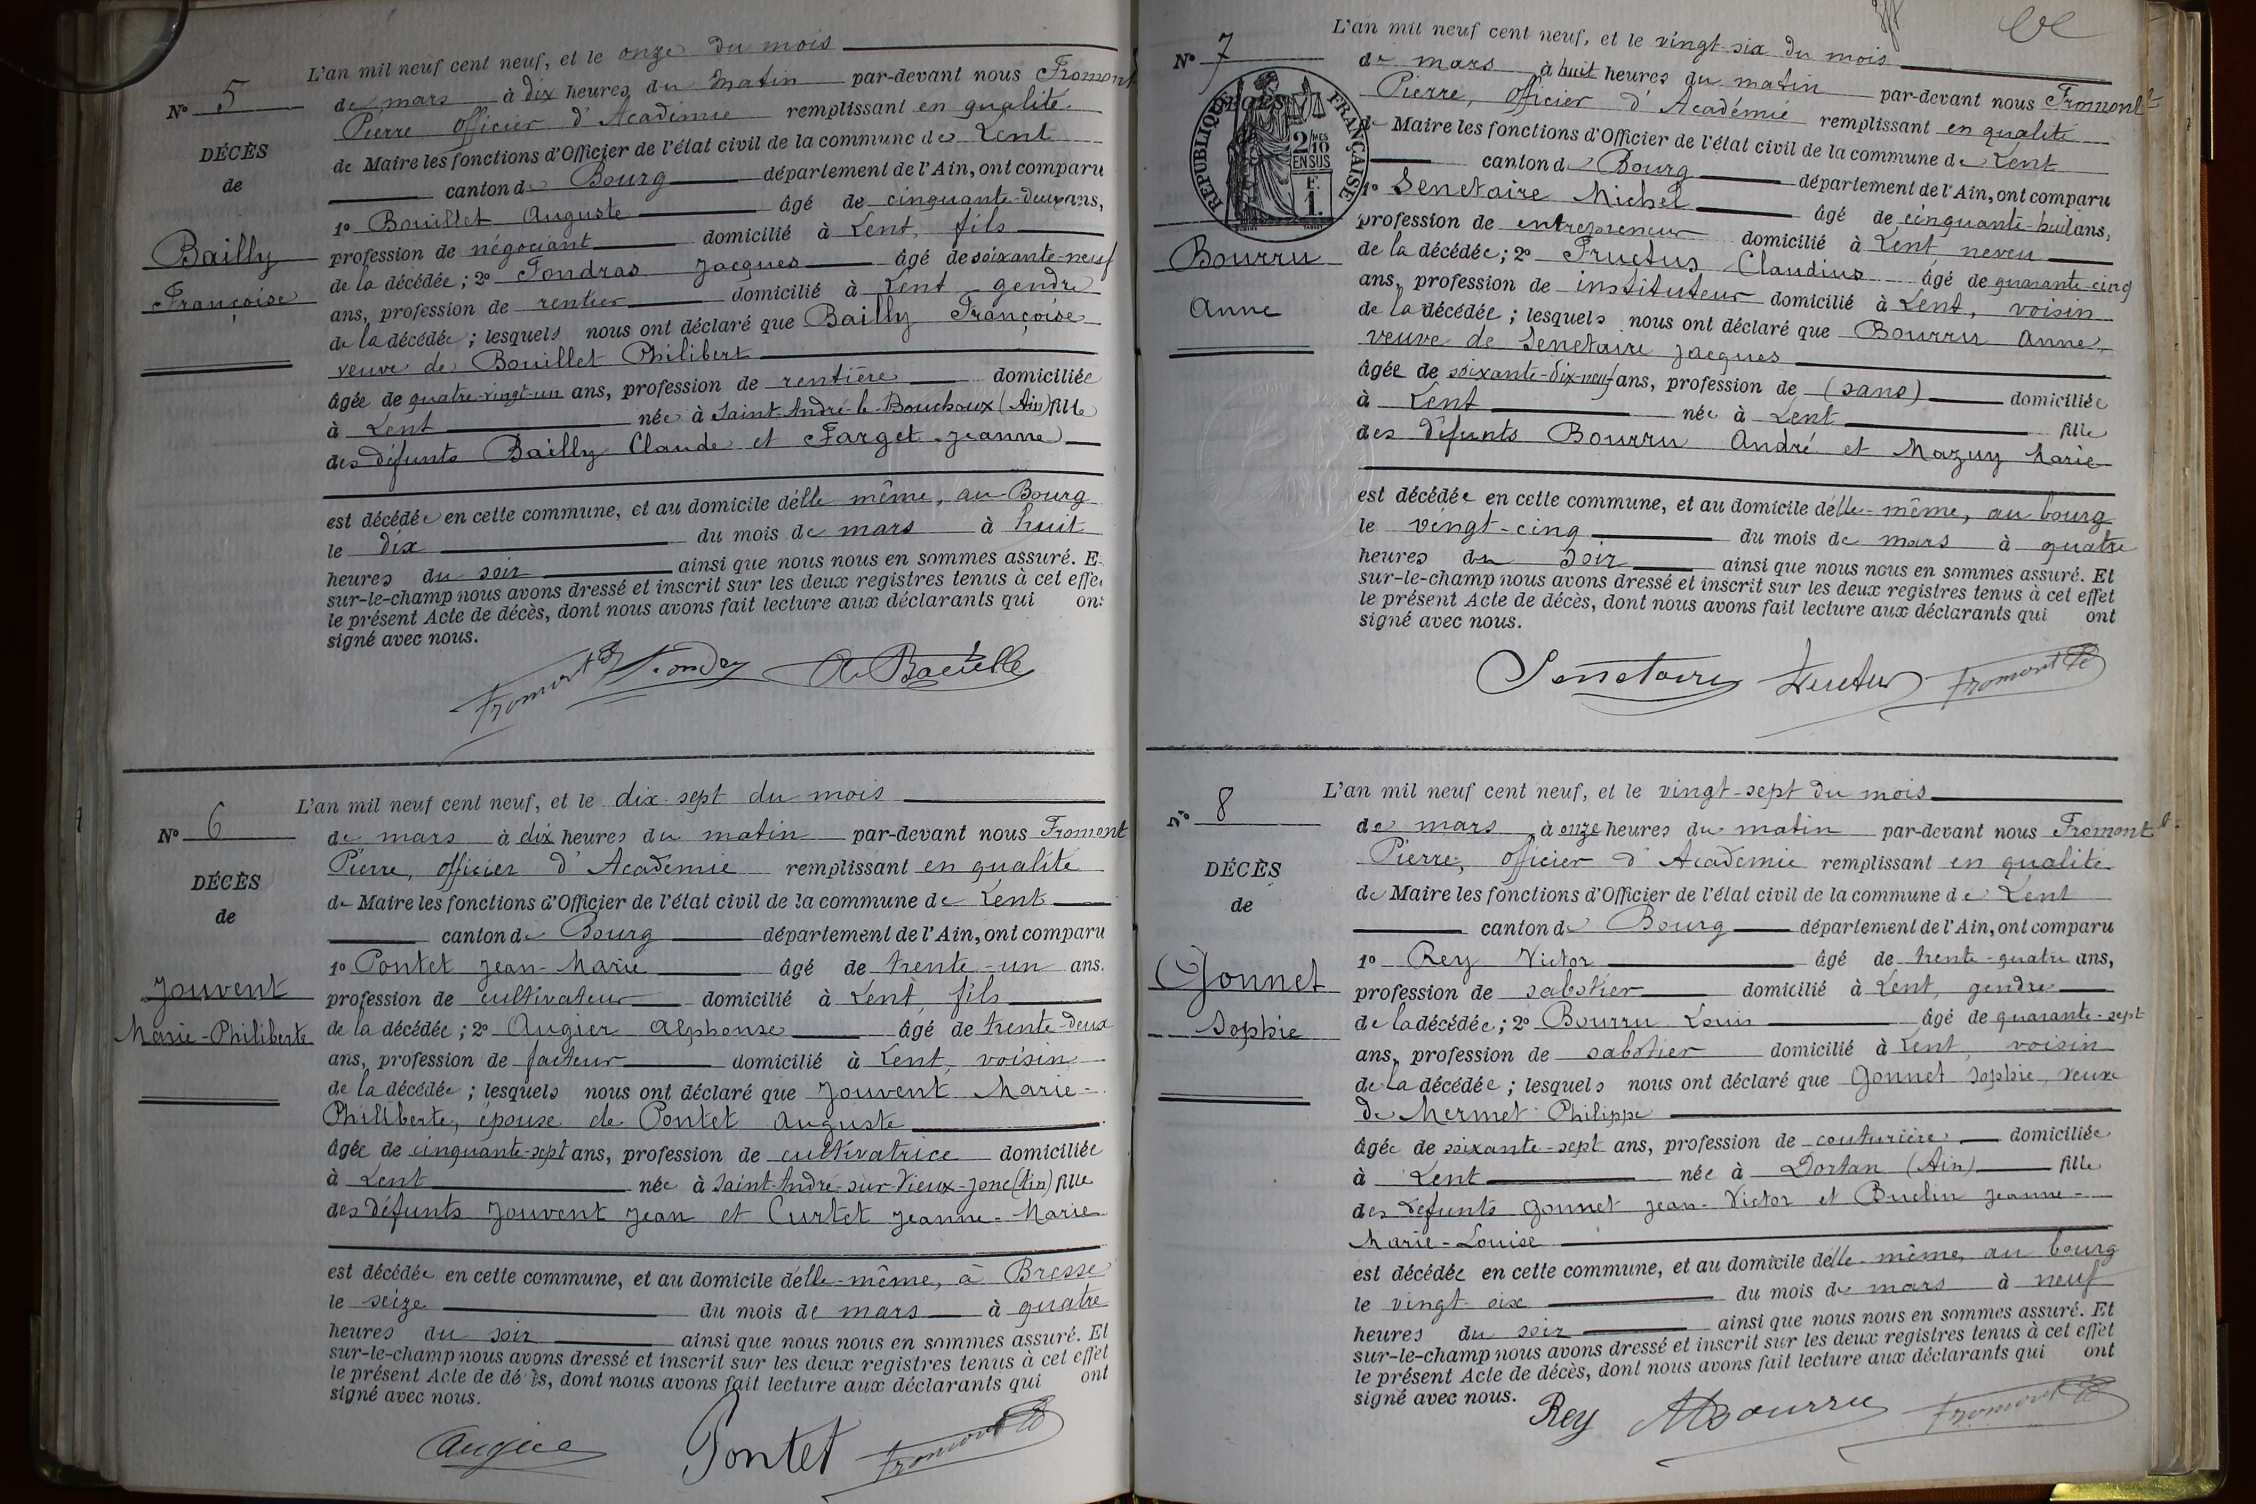 L'an mil neuf cent neuf, et le onze du mois
N° 5
de mars à dix heures du matin par-devant nous Fromont
Pierre officier d'Académie remplissant en qualité
DÉCÈS
de Maire les fonctions d'Officier de l'état civil de la commune de Lent
de
canton de Bourg département de l'Ain, ont comparu
1° Bouillet Auguste âgé de cinquante-deux ans,
Bailly
profession de négociant domicilié à Lent, fils
de la décédée; 2° Tondras Jacques âgé de soixante-neuf
Françoise
ans, profession de rentier domicilié à Lent gendre
de la décédée; lesquels nous ont déclaré que Bailly Françoise
veuve de Bouillet Philibert
âgée de quatre-vingt-un ans, profession de rentière domiciliée
à Lent née à Saint-André-le-Bouchoux (Ain) fille
des défunts Bailly Claude et Farget Jeanne
est décédée en cette commune, et au domicile d'elle même, au Bourg
le dix du mois de mars à huit
heures du soir ainsi que nous nous en sommes assuré. E
sur-le-champ nous avons dressé et inscrit sur les deux registres tenus à cet effe
le présent Acte de décès, dont nous avons fait lecture aux déclarants qui on
signé avec nous.
Fromont
L'an mil neuf cent neuf, et le dix-sept du mois
N° 6
de mars à dix heures du matin par-devant nous Fromont
Pierre, officier d'Académie remplissant en qualité
DÉCÈS
de Maire les fonctions d'Officier de l'état civil de la commune de Lent
de
canton de Bourg département de l'Ain, ont comparu
1° Pontet Jean-Marie âgé de trente-un ans.
Jouvent
profession de cultivateur domicilié à Lent, fils
Marie-Philiberte
de la décédée; 2° Augier Alphonse âgé de trente-deux
ans, profession de facteur domicilié à Lent, voisin
de la décédée; lesquels nous ont déclaré que Jouvent Marie-
Philiberte, épouse de Pontet Auguste
âgée de cinquante-sept ans, profession de cultivatrice domiciliée
à Lent née à Saint-André-sur-Vieux-Jonc (Ain) fille
des défunts Jouvent Jean et Curtet Jeanne-Marie
est décédée en cette commune, et au domicile d'elle-même, à Bresse
le seize du mois de mars à quatre
heures du soir ainsi que nous nous en sommes assuré. Et
sur-le-champ nous avons dressé et inscrit sur les deux registres tenus à cet effet
le présent Acte de décès, dont nous avons fait lecture aux déclarants qui ont
signé avec nous.
Augier Pontet Fromont
L'an mil neuf cent neuf, et le vingt-six du mois
N° 7
de mars à huit heures du matin par-devant nous Fromont
Pierre, officier d'Académie remplissant en qualité
RÉPUBLIQUE FRANÇAISE
2 MES
10
EN SUS
F.
1.
de Maire les fonctions d'Officier de l'état civil de la commune de Lent
canton de Bourg département de l'Ain, ont comparu
1° Senetaire Michel âgé de cinquante-huit ans,
profession de entrepreneur domicilié à Lent, neveu
Bourru
de la décédée; 2° Fructus Claudius âgé de quarante-cinq
ans, profession de instituteur domicilié à Lent, voisin
Anne
de la décédée; lesquels nous ont déclaré que Bourru Anne,
veuve de Senetaire Jacques
âgée de soixante-dix-neuf ans, profession de (sans) domiciliée
à Lent née à Lent fille
des défunts Bourru André et Mazuy Marie
est décédée en cette commune, et au domicile d'elle-même, au bourg
le vingt-cinq du mois de mars à quatre
heures du soir ainsi que nous nous en sommes assuré. Et
sur-le-champ nous avons dressé et inscrit sur les deux registres tenus à cet effet
le présent Acte de décès, dont nous avons fait lecture aux déclarants qui ont
signé avec nous.
Senetaire Fructus Fromont
L'an mil neuf cent neuf, et le vingt-sept du mois
N° 8
de mars à onze heures du matin par-devant nous Fromont
Pierre, officier d'Académie remplissant en qualité
DÉCÈS
de Maire les fonctions d'Officier de l'état civil de la commune de Lent
de
canton de Bourg département de l'Ain, ont comparu
1° Rey Victor âgé de trente-quatre ans,
Gonnet
profession de sabotier domicilié à Lent, gendre
Sophie
de la décédée; 2° Bourru Louis âgé de quarante-sept
ans, profession de sabotier domicilié à Lent, voisin
de la décédée; lesquels nous ont déclaré que Gonnet Sophie, veuve
de Mermet Philippe
âgée de soixante-sept ans, profession de couturière domiciliée
à Lent née à Dortan (Ain) fille
des défunts Gonnet Jean-Victor et Buclin Jeanne-
Marie-Louise
est décédée en cette commune, et au domicile d'elle-même, au bourg
le vingt-six du mois de mars à neuf
heures du soir ainsi que nous nous en sommes assuré. Et
sur-le-champ nous avons dressé et inscrit sur les deux registres tenus à cet effet
le présent Acte de décès, dont nous avons fait lecture aux déclarants qui ont
signé avec nous.
Rey Bourru Fromont